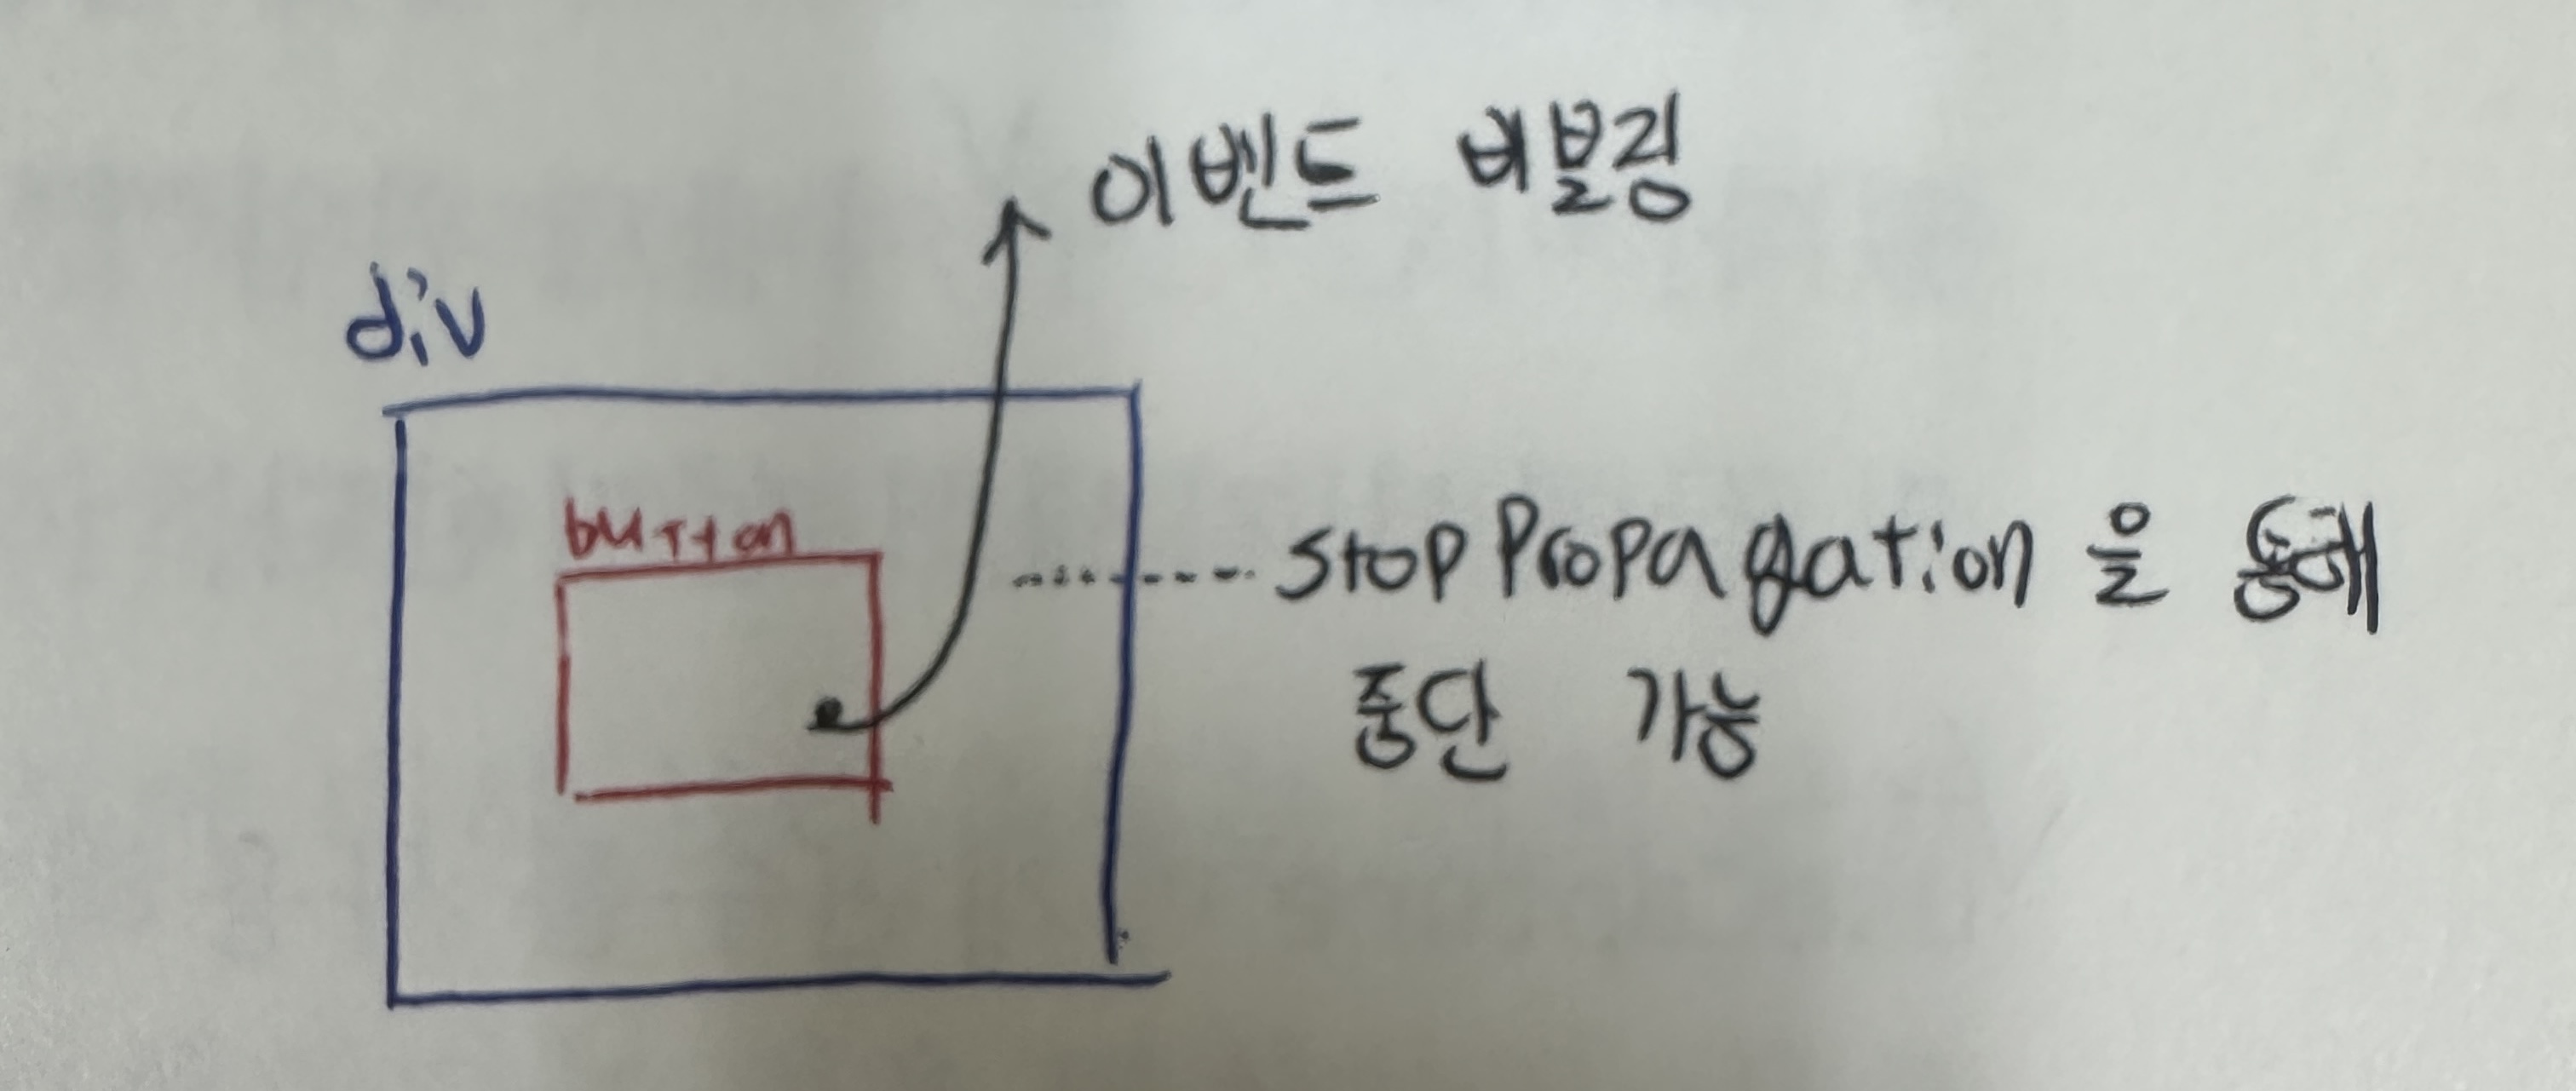 이벤트 버블링
div
button
stop Propagation 을 통해
중단 가능